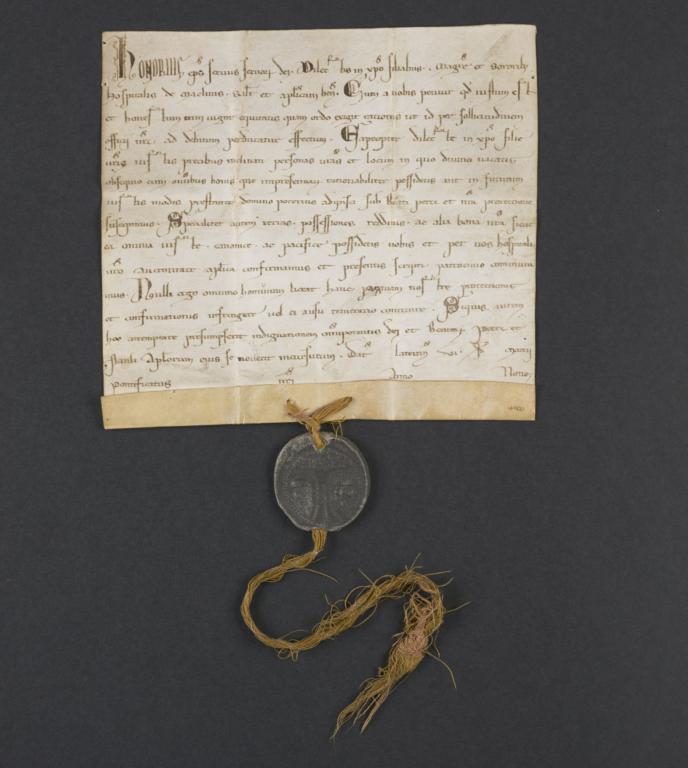 HONORIUS ep̄s servus servoꝝ dei. Dilec̄ in xp̄o filiabus. Magr̄e et Sororib;
hospitalis de Maclinis. Salt̄ et aplīcam ben̄. Cum a nobis petitur qd̄ iustum est
et honestum tam vigor equitatis quam ordo exigit rationis ut id per sollicitudinem
officij nr̄i. ad debitum perducatur effectum. Eapropter dilec̄te in xp̄o filie
vr̄is iustis precibus inclinati personas vr̄as et locum in quo divino vacatis
obsequio cum omībus bonis que impresentiarum rationabiliter possidetis aut in futurum
iustis modis prestante domino poteritis adipisci. sub Beati petri et nr̄a protectione
suscipimus. Specialiter autem terras. possessiones. redditus. ac alia bona vr̄a sicut
ea omnia iuste. canonice. ac pacifice possidetis vobis et per vos hospitali
vr̄o auctoritate aplīca confirmamus et presentis scripti patrocinio communi
mus. Nulli ergo omnino hominum liceat hanc paginam nostre protectionis
et confirmationis infringere vel ei ausu temerario contraire. Siquis autem
hoc attemptare presumpserit indignationem omnipotentis dei et Beatoꝝ petri et
Pauli Aplorum eius se noverit incursurum. Dat̄ Laterañ
pontificatus nr̄i Anno Nono.